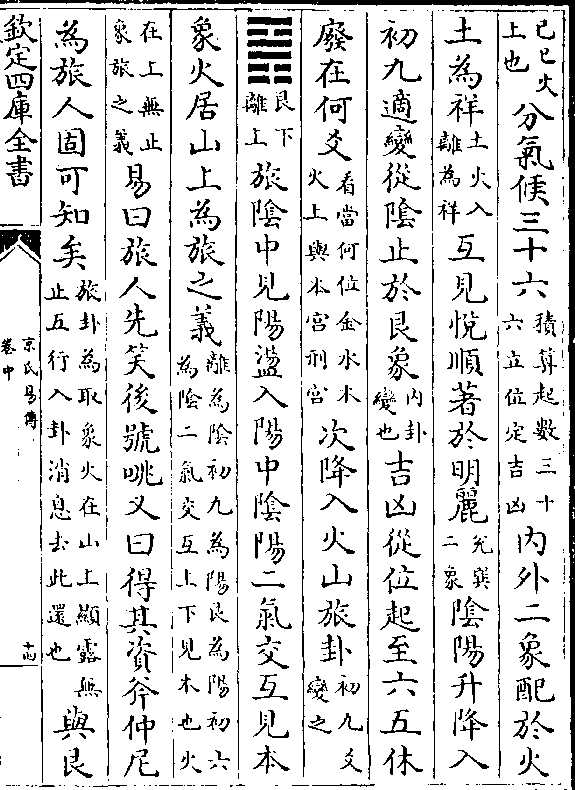 己巳火上也分氣候三十六積算起數三十六立位定吉凶内外二象配於火
土為祥土火入離為祥互見悦順著於明麗兊巽二象陰陽升降入
初九適變從陰止於艮象内卦變也吉凶從位起至六五休
廢在何爻看當何位金水木火土與本宫刑宫次降入火山旅卦初九爻變之
䷷艮下離上旅陰中見陽蕩入陽中陰陽二氣交互見本
象火居山上為旅之義離為陰初九為陽艮為陽初六為陰二氣交互上下見木也火
在上無止象旅之義易曰旅人先笑後號咷又曰得其資斧仲尼
為旅人固可知矣旅卦為取象火在山上顯露無止五行入卦消息去此還也與艮
欽定四庫全書
京氏易傳
卷中
十四